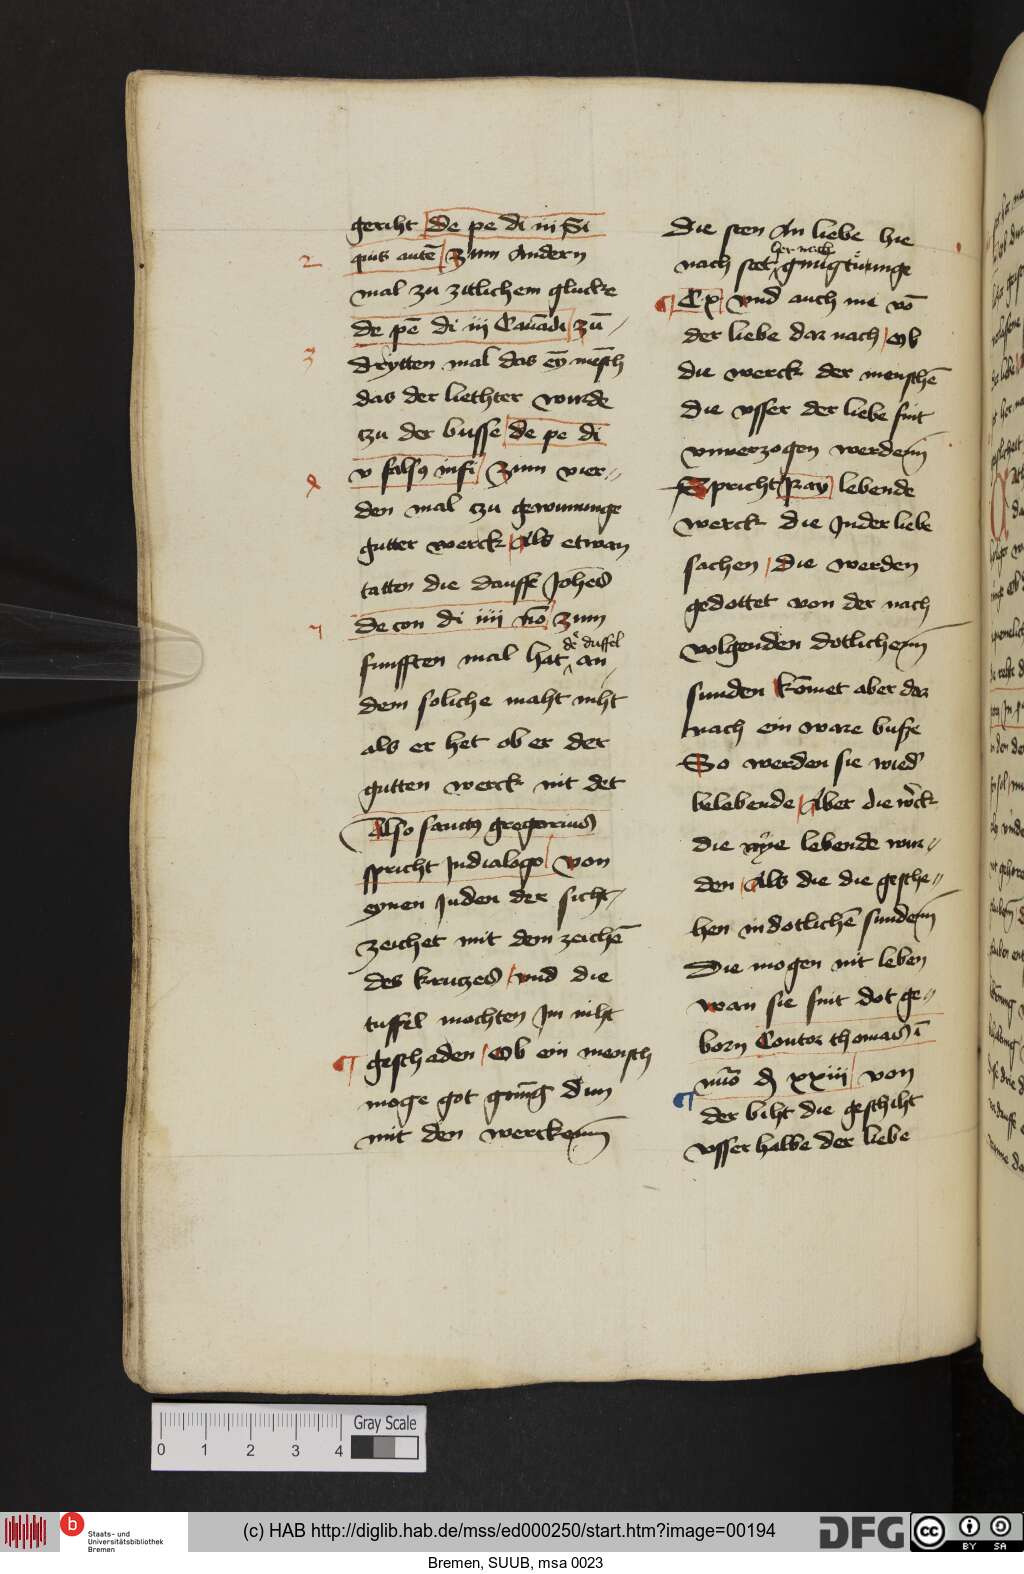 geriht de pe di iii Si
2 quis autē zum Andern
mal zu zitlichem glucke
de pē di iij Cauēdi zū
3 drytten mal das eȳ mēsch
das der liethter wurde
czu der busse de pe di
v falsꝯ infi zum vier
4 den mal czu gewinnunge
gutter werck Als etwan
tatten die dauffe Johēs
5 de con di iiii nō zum
funfften mal hat dē duffel an
dem soliche maht niht
als er het ob er der
gutten werck nit det
Also sanctꝯ gregorius
spricht Jn dialogo von
eynen Juden der sicht
zeichet mit dem zeichē
des krutzes vnd die
tuffel mochten Jm niht
¶ geschaden Ob ein mensch
moge got gnūg dun
mit den werckenn
die sten An liebe hie
nach stet her nach gnugtüunge
¶ Ex vnd auch me vō
der liebe dar nach Ob
die werck der menschē
die vsser der liebe sint
vnuerzogen werdenn
Spricht Ray lebende
werck die Jn der liebe
sachen die werden
gedottet von der nach
volgenden dotlichenn
sunden kōmet aber dar
nach ein ware busze
So werden sie wied
belebende Aber die wᵉck
die nye lebende wur
den Als die die gesche
hen in dotlichē sundenn
Die mogen nit leben
wan sie sint dot ge
born Contor thomas ī
nūo d xxiii von
¶ der biht die geschiht
vsser halbe der liebe
0 1 2 3 4
Gray Scale
b Staats- und
Universitätsbibliothek
Bremen
(c) HAB http://diglib.hab.de/mss/ed000250/start.htm?image=00194
DFG
cc BY SA
Bremen, SUUB, msa 0023